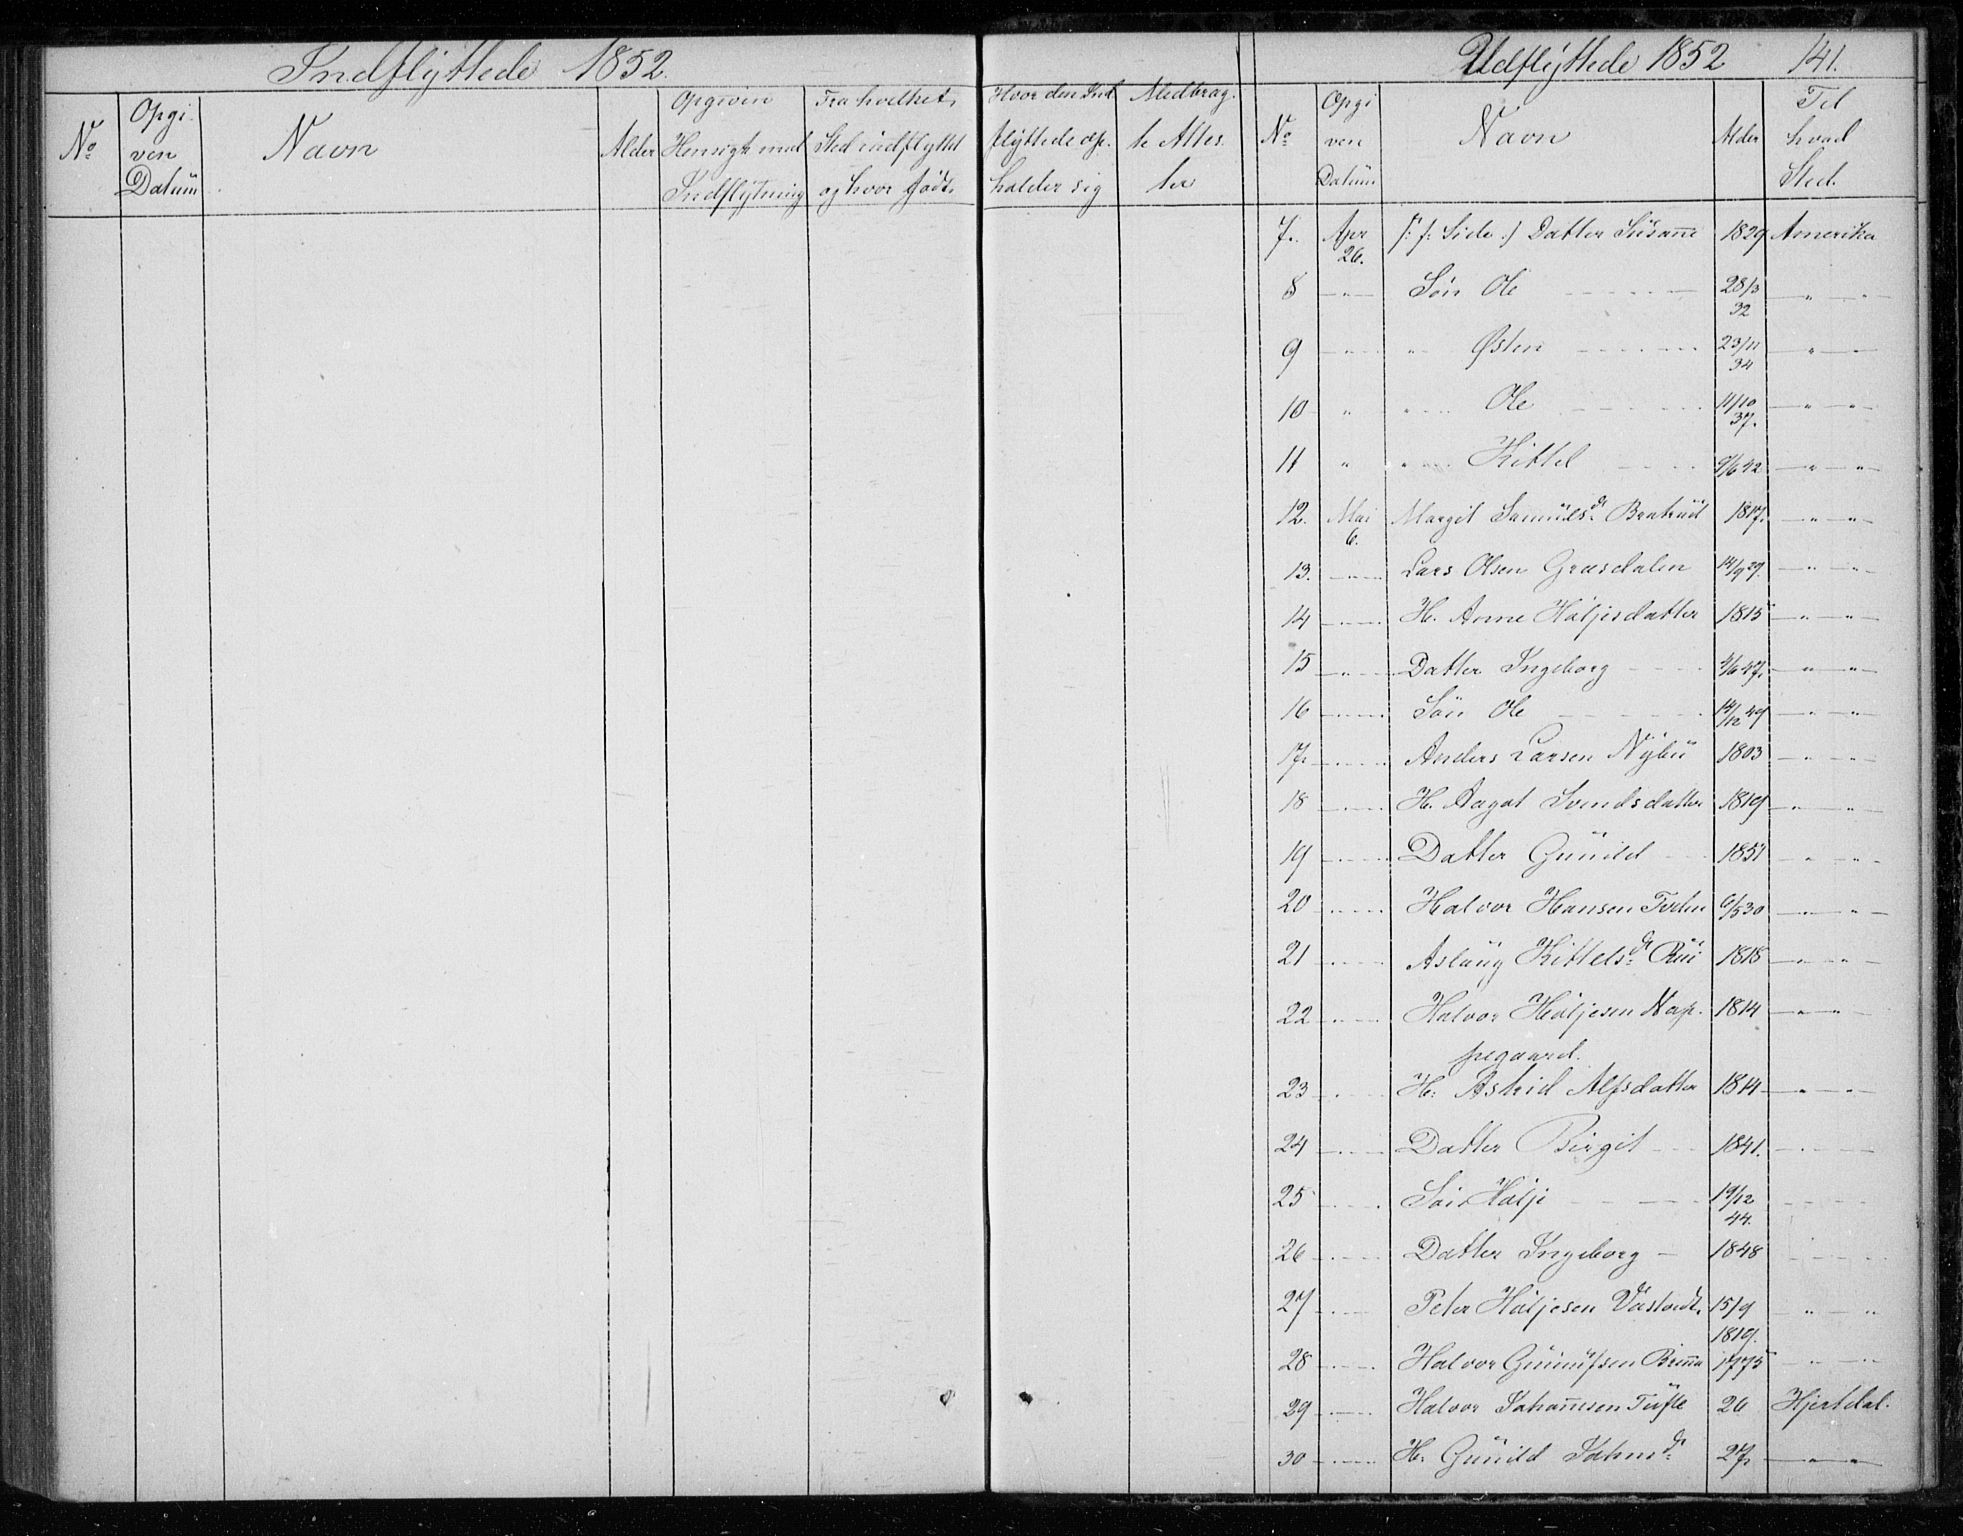 Indflyttede 1852.
No Opgi ven Datum Navn Alder Opgiven Hensigt med Indflytning Fra hvilket Sted indflyttet og hvor født. Hvor den Ind flyttede op holder sig Medbrag te Attes ter
Udflyttede 1852 141.
No Opgi ven Datum Navn Alder Til hvad Sted.
7. Apr 26. /: f: Side :/ Datter Susanne 1829 Amerika
8 — " — Søn Ole 28/3 32 — " —
9 — " — " Østen 23/11 34 — " —
10 " " Ole 11/10 37. — " — " —
11 " " Kittel 9/6 42 — " — " —
12. Mai 6. Margit Samuelsdr Bratrud 1817. — " — " —
13. — " — Lars Olsen Grasdalen 14/9 29. — " — " —
14 — " — H. Anne Høljesdatter 1815 — " — " —
15 — " — Datter Ingeborg 4/6 47. — " — " —
16 — " — Søn Ole 14/12 49 — " — " —
17 — " — Anders Larsen Nybu 1803 — " — " —
18 — " — H. Aagot Svendsdatter 1819 — " — " —
19 — " — Datter Gunild 1851 — " — " —
20 — " — Halvor Hansen 6/5 30 — " — " —
21 — " — Aslaug Kittelsdr Rui 1818 — " — " —
22 — " — Halvor Høljesen Nap- 1814 — " — " —
pegaard.
23 — " — H. Astrid Alfsdatter 1814 — " — " —
24 — " — Datter Birgit 1841. — " — " —
25 — " — Søn Hølje 19/12 44. — " —
26 — " — Datter Ingeborg 1848 — " —
27 — " — Peter Høljesen 15/9 1819. — " — " —
28 — " — Halvor Gunnufsen 1775 — " — " —
29 — " — Halvor Johannsen Tufte 26 Hjertdal.
30 — " — H. Gunild dr 27 — " —